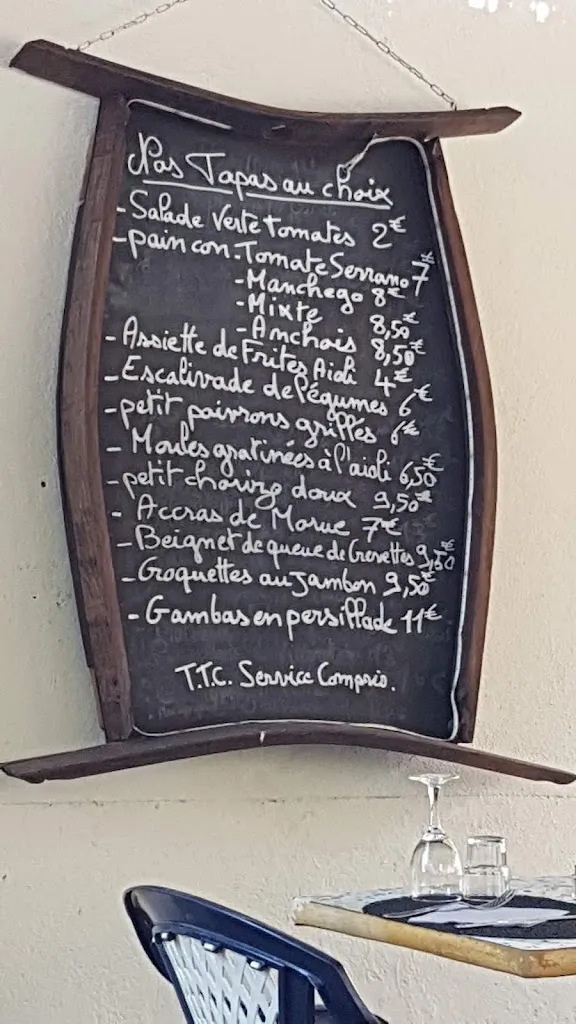 Nos Tapas au choix
- Salade Verte tomates 2€
- pain con. Tomate Serrano 7€
- Manchego 8€
- Mixte 8,50€
- Anchois 8,50€
- Assiette de Frites Aioli 4€
- Escalivade de légumes 6€
- petit poivrons grillés 6€
- Moules gratinées à l'aioli 6,50€
- petit chorizo doux 9,50€
- Accras de Morue 7€
- Beignet de queue de Crevettes 9,50€
- Croquettes au Jambon 9,50€
- Gambas en persillade 11€
T.T.C. Service Compris.